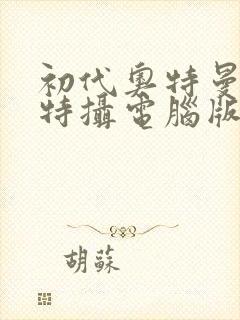 初代奧特曼
特攝電腦版
胡蘇